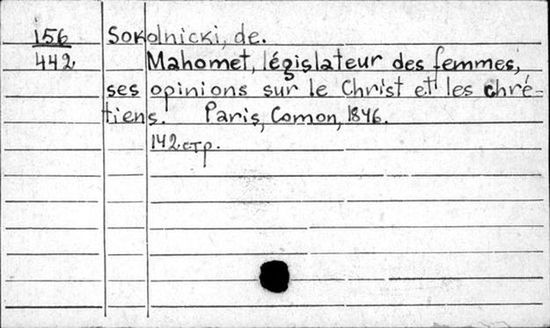 156
442
Sokolnicki, de.
Mahomet, législateur des femmes,
ses opinions sur le Christ et les chré-
tiens. Paris, Comon, 1846.
142 стр.